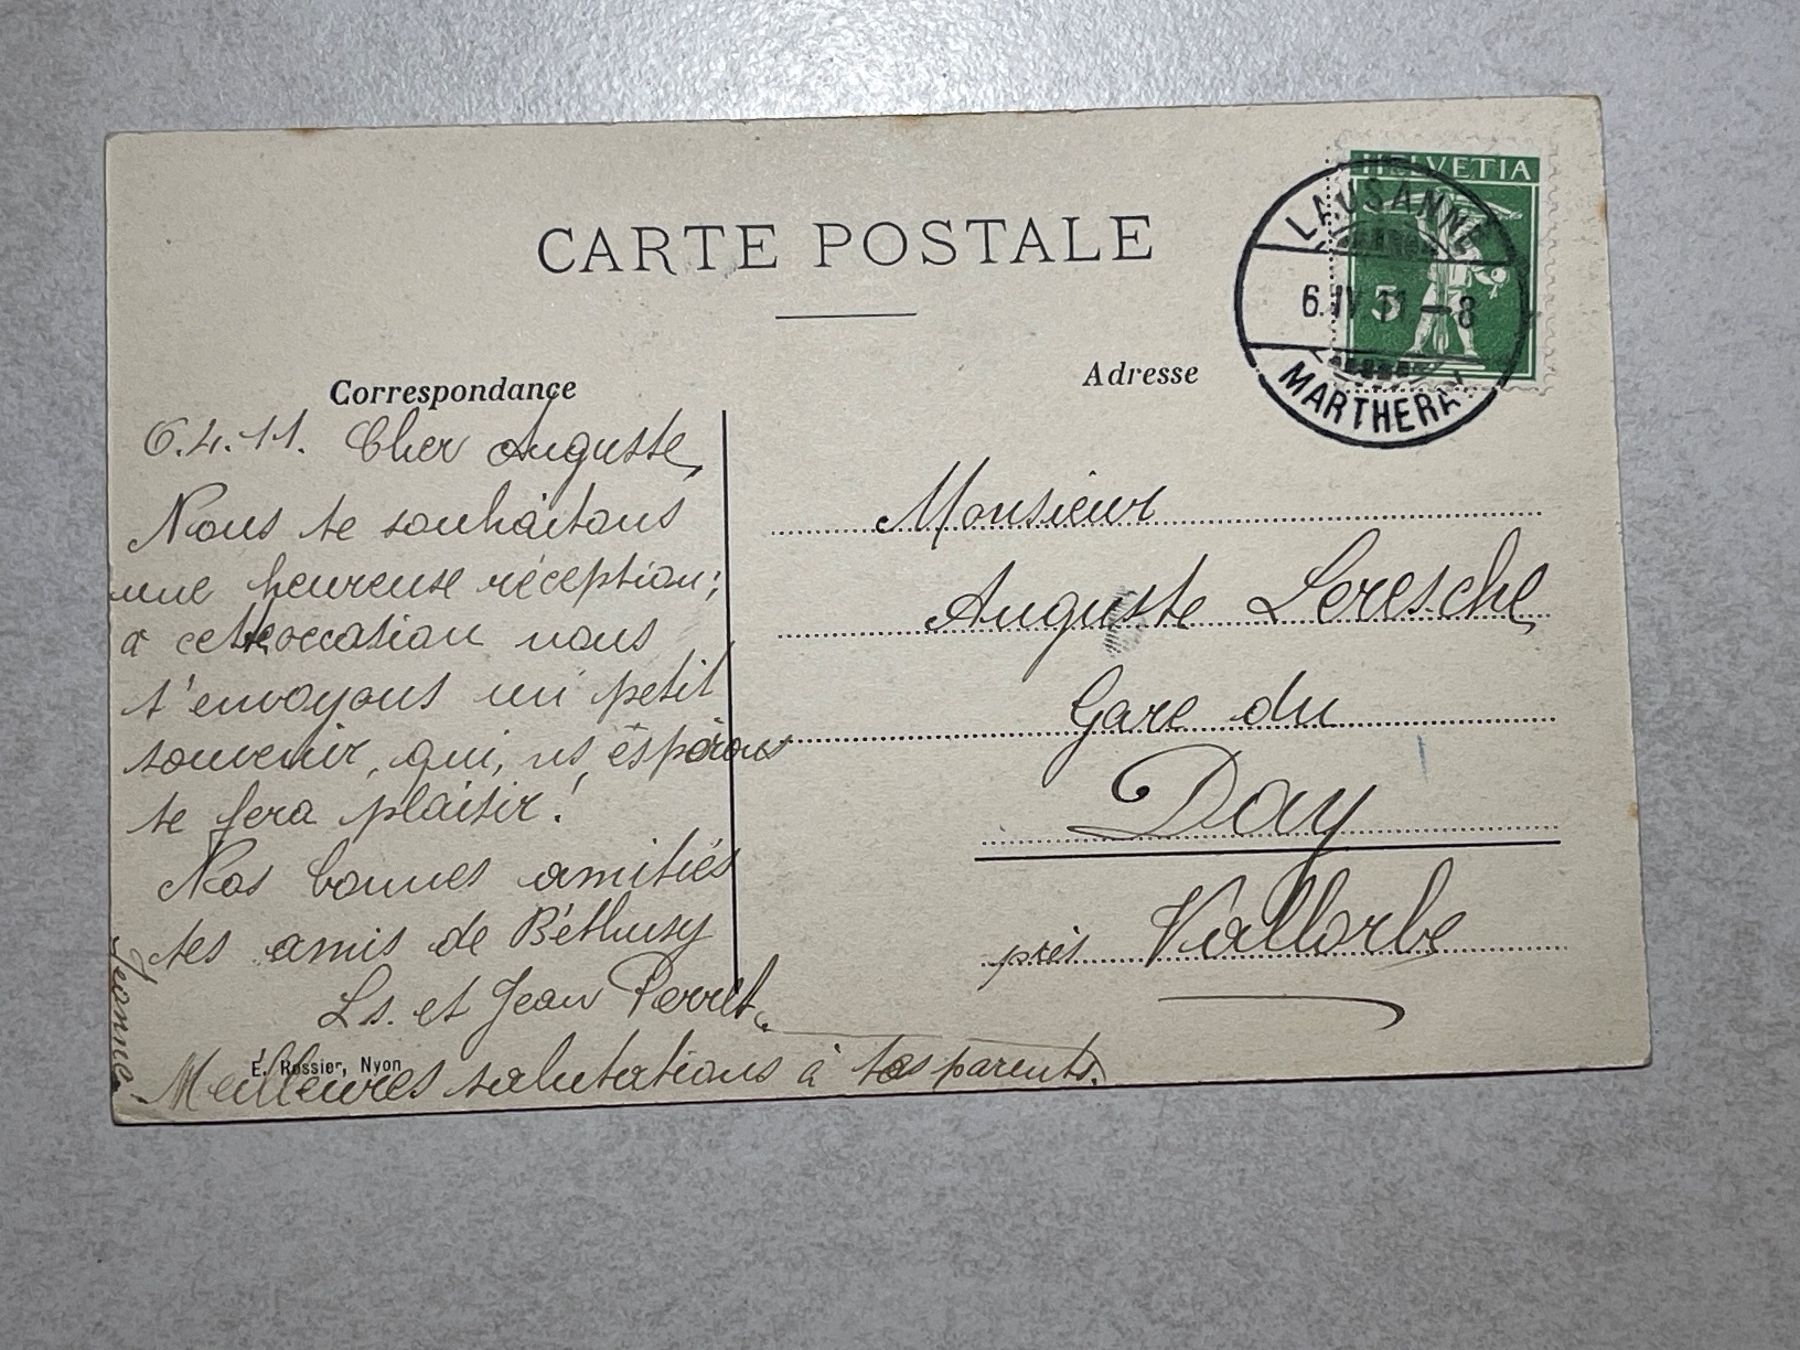 CARTE POSTALE
HELVETIA
5
LAUSANNE
6.IV 11 –8
MARTHERAY
Correspondance
6.4.11. Cher Auguste,
Nous te souhaitons
une heureuse réception;
à cette occasion nous
t'envoyons un petit
souvenir, qui, ns espérons
te fera plaisir!
Nos bonnes amitiés
tes amis de Béthusy
Ls. et Jean Perret.
Jeanne.
Meilleures salutations à tes parents.
E. Rossier, Nyon
Adresse
Monsieur
Auguste Leresche
Gare du
Day
près Vallorbe